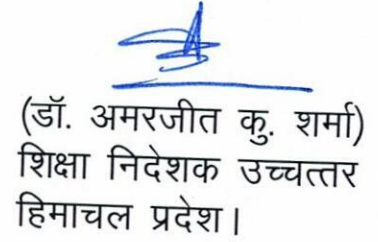 (डॉ. अमरजीत कु. शर्मा)
शिक्षा निदेशक उच्चत्तर
हिमाचल प्रदेश।